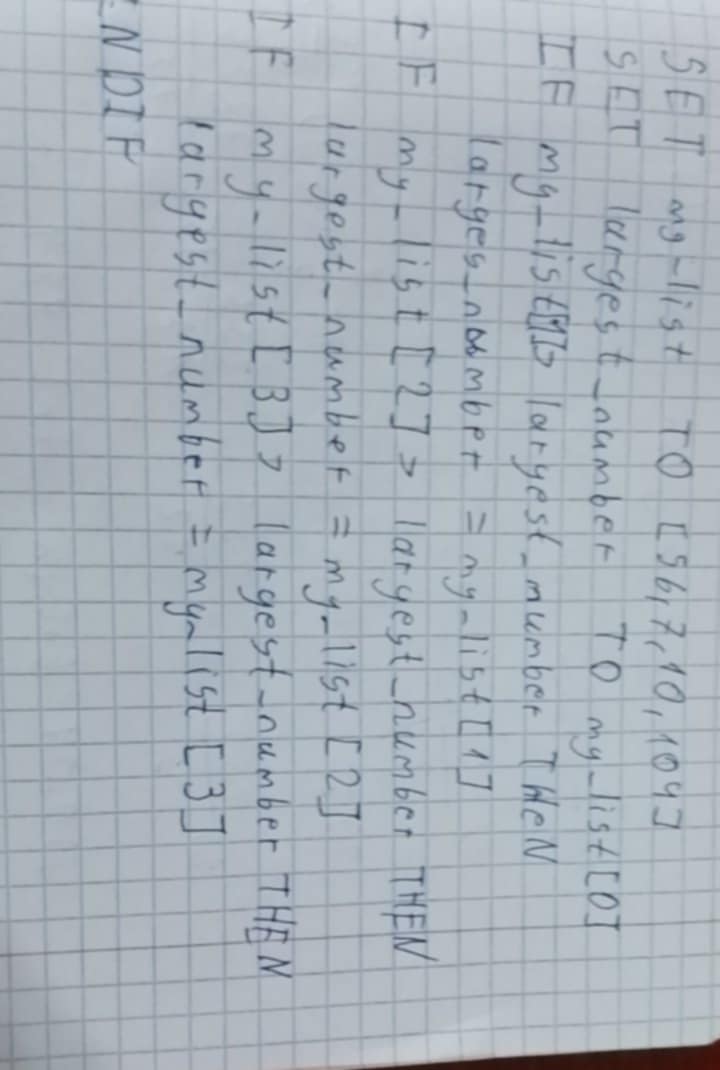 SET my-list TO [56,7,10,104]
SET largest_number TO my_list[0]
IF my-list[1]> largest_number THEN
larges_number = my-list[1]
IF my-list[2]> largest_number THEN
largest_number = my-list[2]
IF my-list[3]> largest-number THEN
largest_number = my-list[3]
ENDIF